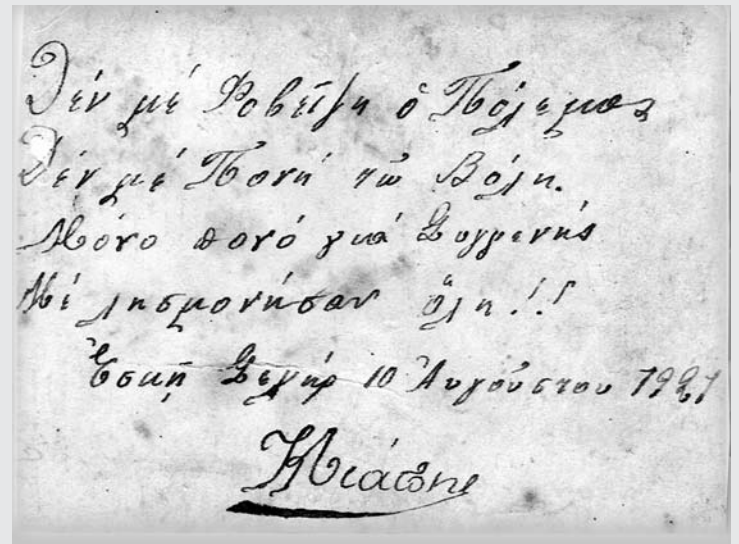 Δέν μέ Φοβεῖζη ὁ Πόλεμος
Δέν μέ Πονή τῶ Βόλη.
Μόνο πονό γιά Συγγενής
Μέ λησμονήσαν ὅλη!!!
Ἐσκῆ Σεχήρ 10 Αὐγούστου 1921